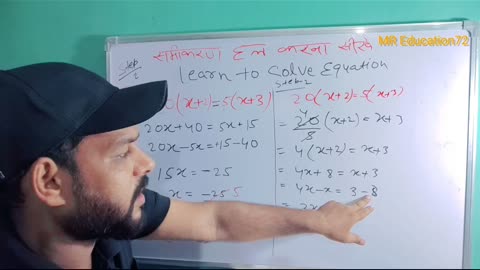 MR Education72
समीकरण हल करना सीखे
Learn to Solve Equation
Step
2
(x+2)=5(x+3)
20x+40=5x+15
20x-5x=+15-40
15x=-25
x=-25 5
Step-2
20(x+2)=5(x+3)
= 4 20 (x+2)=x+3
5
= 4(x+2)=x+3
= 4x+8=x+3
= 4x-x=3-8